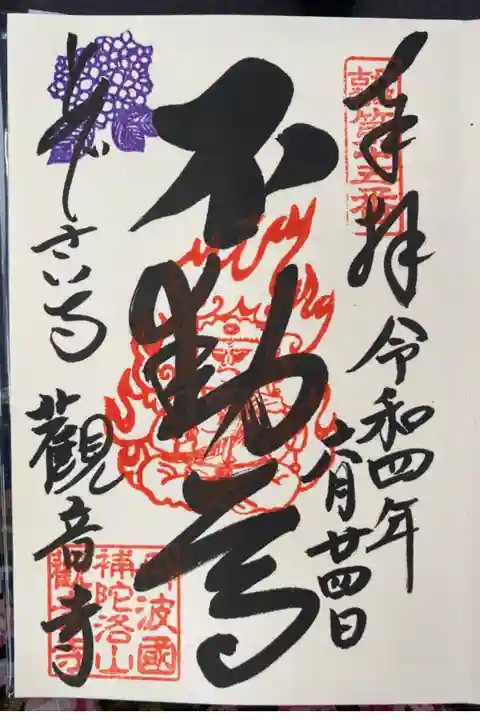 奉拝 令和四年
六月廿四日
不動尊
あじさい寺 觀音寺
丹波國
補陀洛山
觀音寺